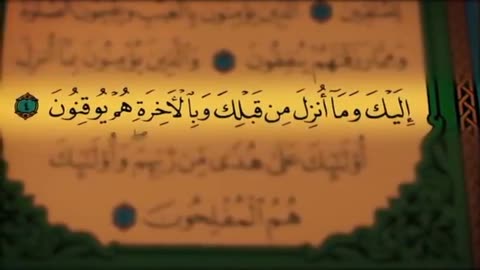 وَمِمَّا رَزَقْنَٰهُمْ يُنفِقُونَ وَٱلَّذِينَ يُؤْمِنُونَ بِمَآ أُنزِلَ
إِلَيْكَ وَمَآ أُنزِلَ مِن قَبْلِكَ وَبِٱلْأَخِرَةِ هُمْ يُوقِنُونَ ٤
أُوْلَٰٓئِكَ عَلَىٰ هُدًى مِّن رَّبِّهِمْ ۖ وَأُوْلَٰٓئِكَ
هُمُ ٱلْمُفْلِحُونَ